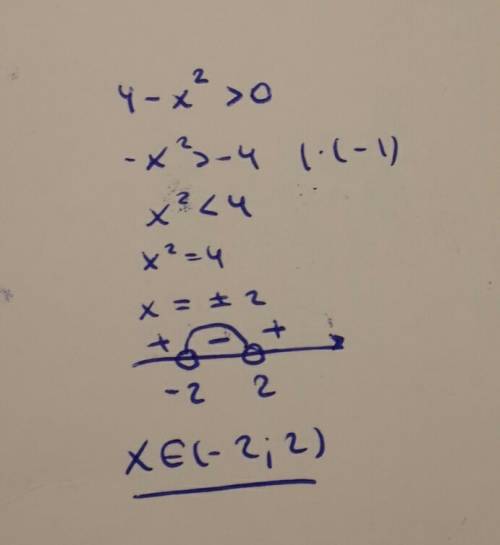 4 - x² > 0
-x² > -4 (·(-1)
x² < 4
x² = 4
x = ± 2
+ - +
-2 2
x∈(-2; 2)